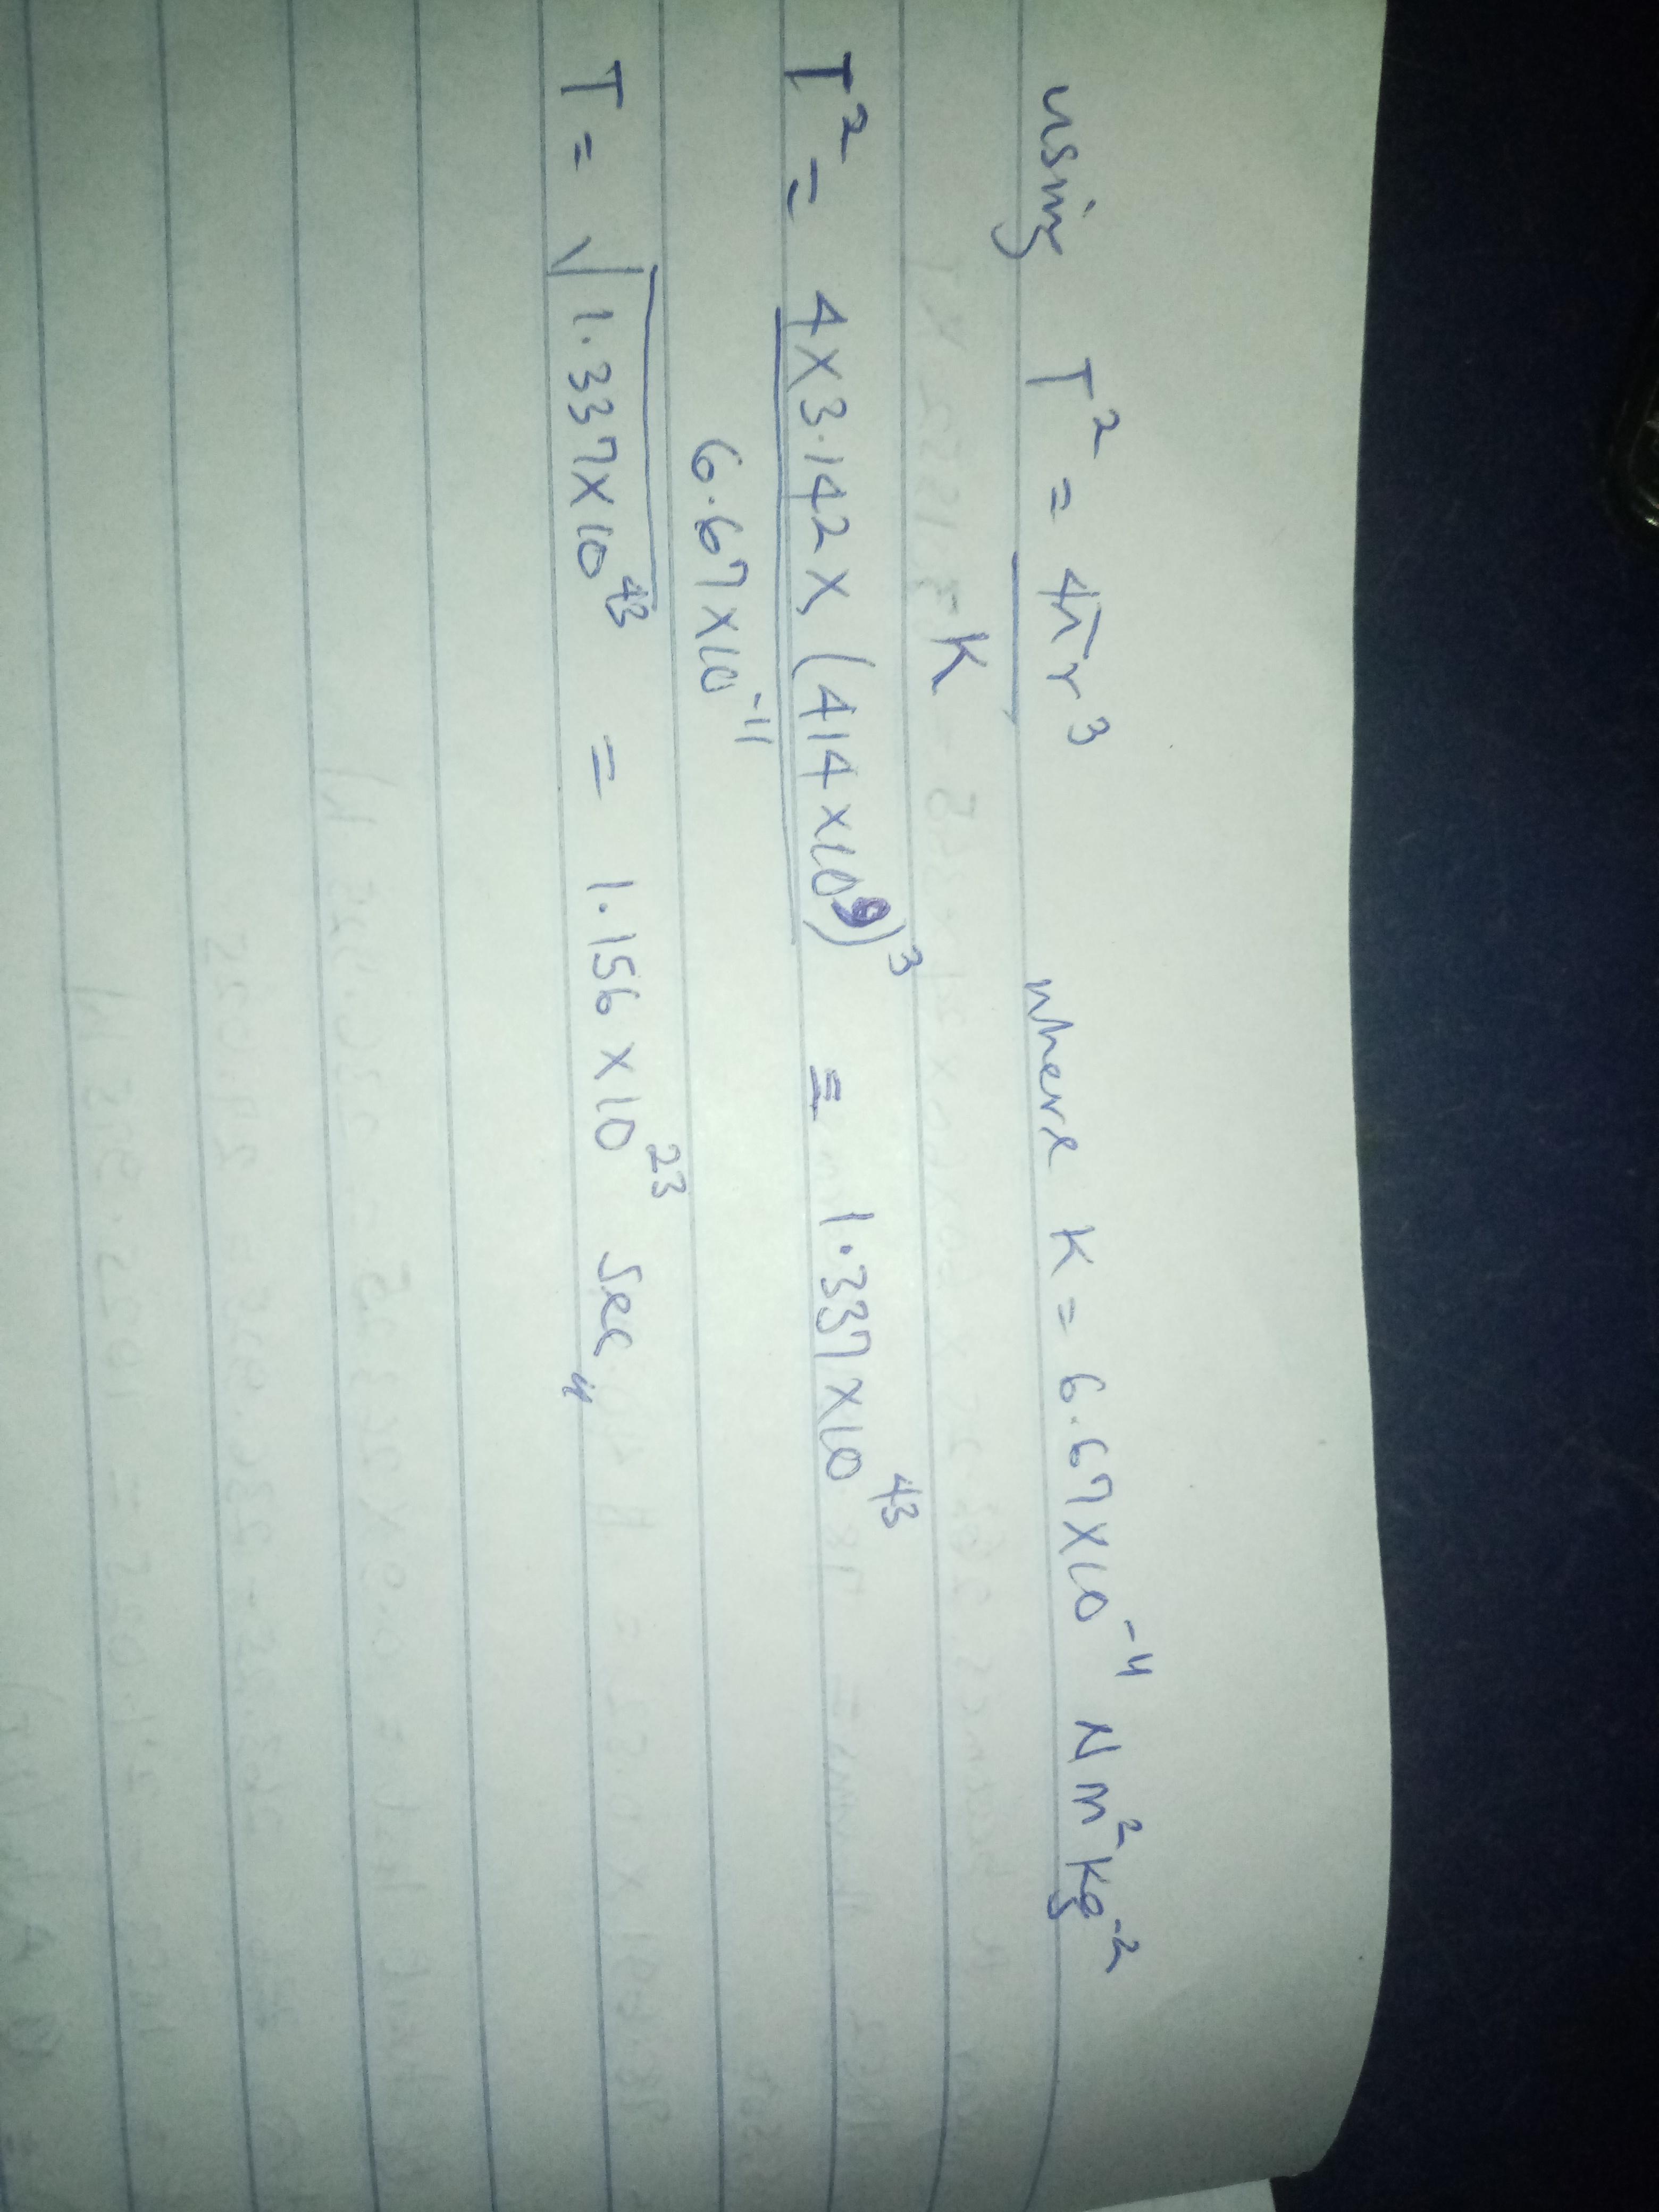 using T² = 4πr³ where K = 6.67×10⁻¹¹ Nm²Kg⁻²
K
T² = 4×3.142×(414×10⁹)³ = 1.337×10⁴³
6.67×10⁻¹¹
T = √1.337×10⁴³ = 1.156×10²³ Sec